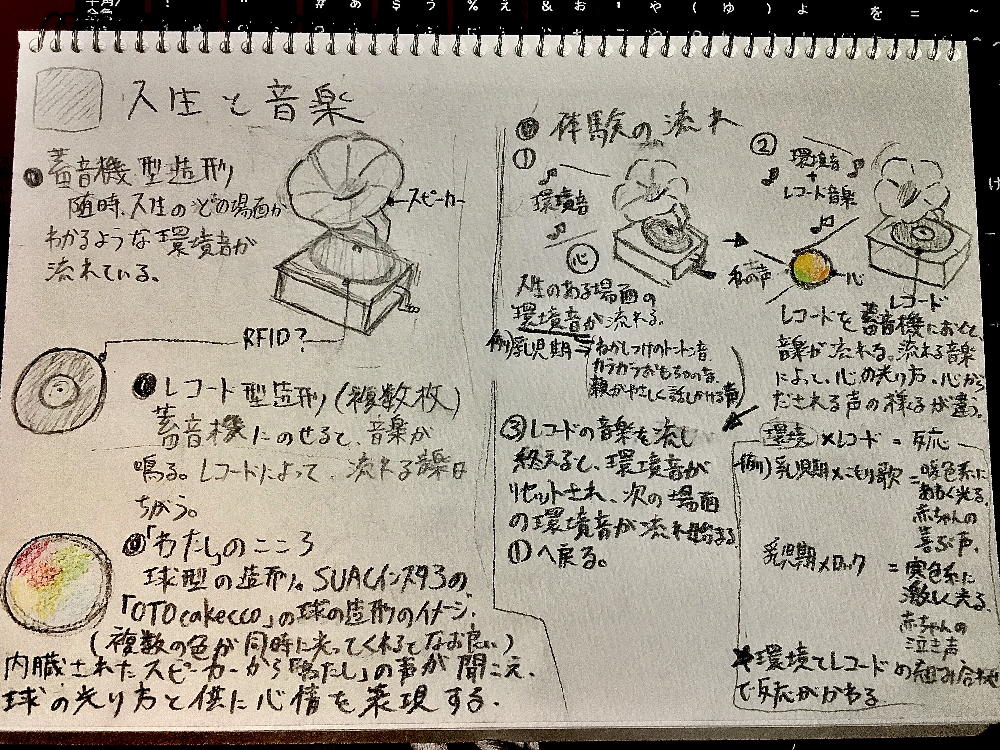 人生と音楽
蓄音機型造形
随時、人生のどの場面か
わかるような環境音が
流れている。
スピーカー
RFID?
レコード型造形(複数枚)
蓄音機にのせると、音楽が
鳴る。レコードによって、流れる音楽は
ちがう。
「わたし」のこころ
球型の造形。SUACインスタ3の
「OTOcakecco」の球の造形のイメージ.
(複数の色が同時に光ってくれるとなお良い)
内臓されたスピーカーから「わたし」の声が聞こえ.
球の光り方と供に心情を表現する.
体験の流れ
①
環境音
心
人生のある場面の
環境音が流れる。
例)乳児期⇒ねかしつけのトントン音
カラカラおもちゃの音
親がやさしく話しかける声
②
環境音
+
レコード音楽
私の声
心
レコード
レコードを蓄音機にのせて
音楽が流れる。流れる音楽
によって、心の光り方・心から
だされる声の様子が違う。
③レコードの音楽を流し
終えると、環境音が
リセットされ、次の場面
の環境音が流れ始める
①へ戻る。
環境×レコード=反応
例)乳児期×こもり歌=暖色系に
あわく光る.
赤ちゃんの
喜ぶ声.
乳児期×ロック=寒色系に
激しく光る.
赤ちゃんの
泣き声
環境とレコードの組み合わせ
で反応がかわる